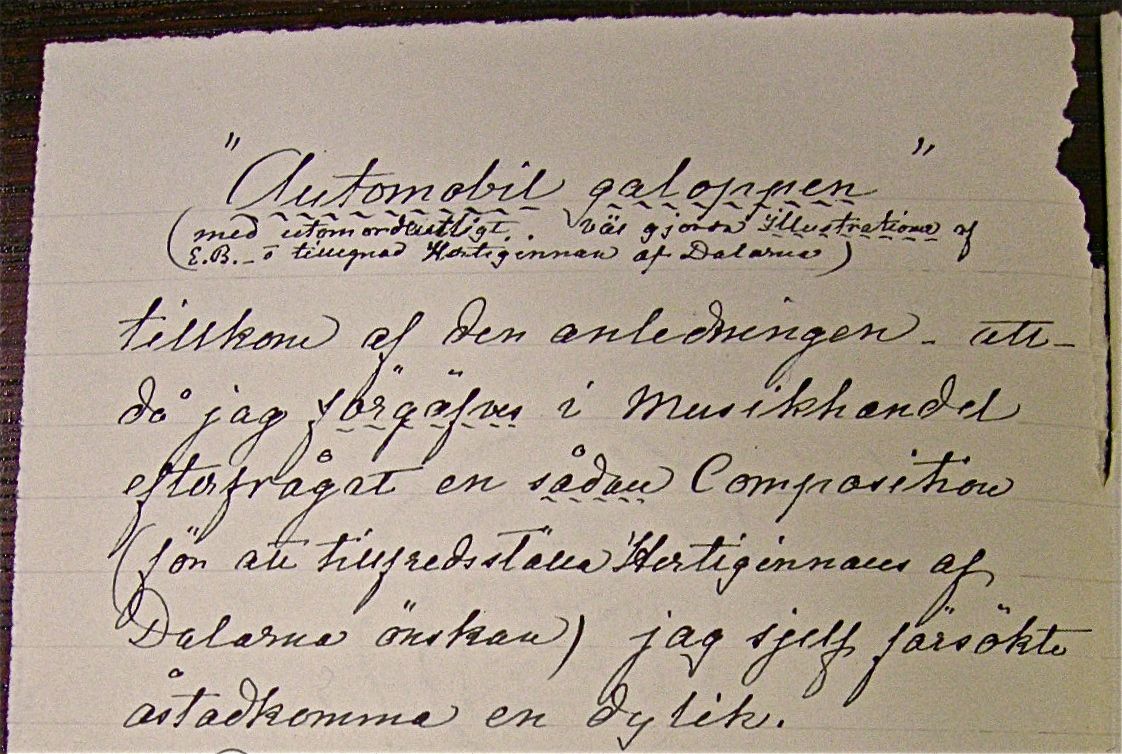 "Automobil galoppen"
(med utomordentligt väl gjorda Illustrationer af
E.B. – o tillegnad Hertiginnan af Dalarna)
tillkom af den anledningen – att –
då jag förgäfves i Musikhandel
efterfrågat en sådan Composition
(för att tillfredsställa Hertiginnans af
Dalarna önskan) jag sjelf försökte
åstadkomma en dylik.